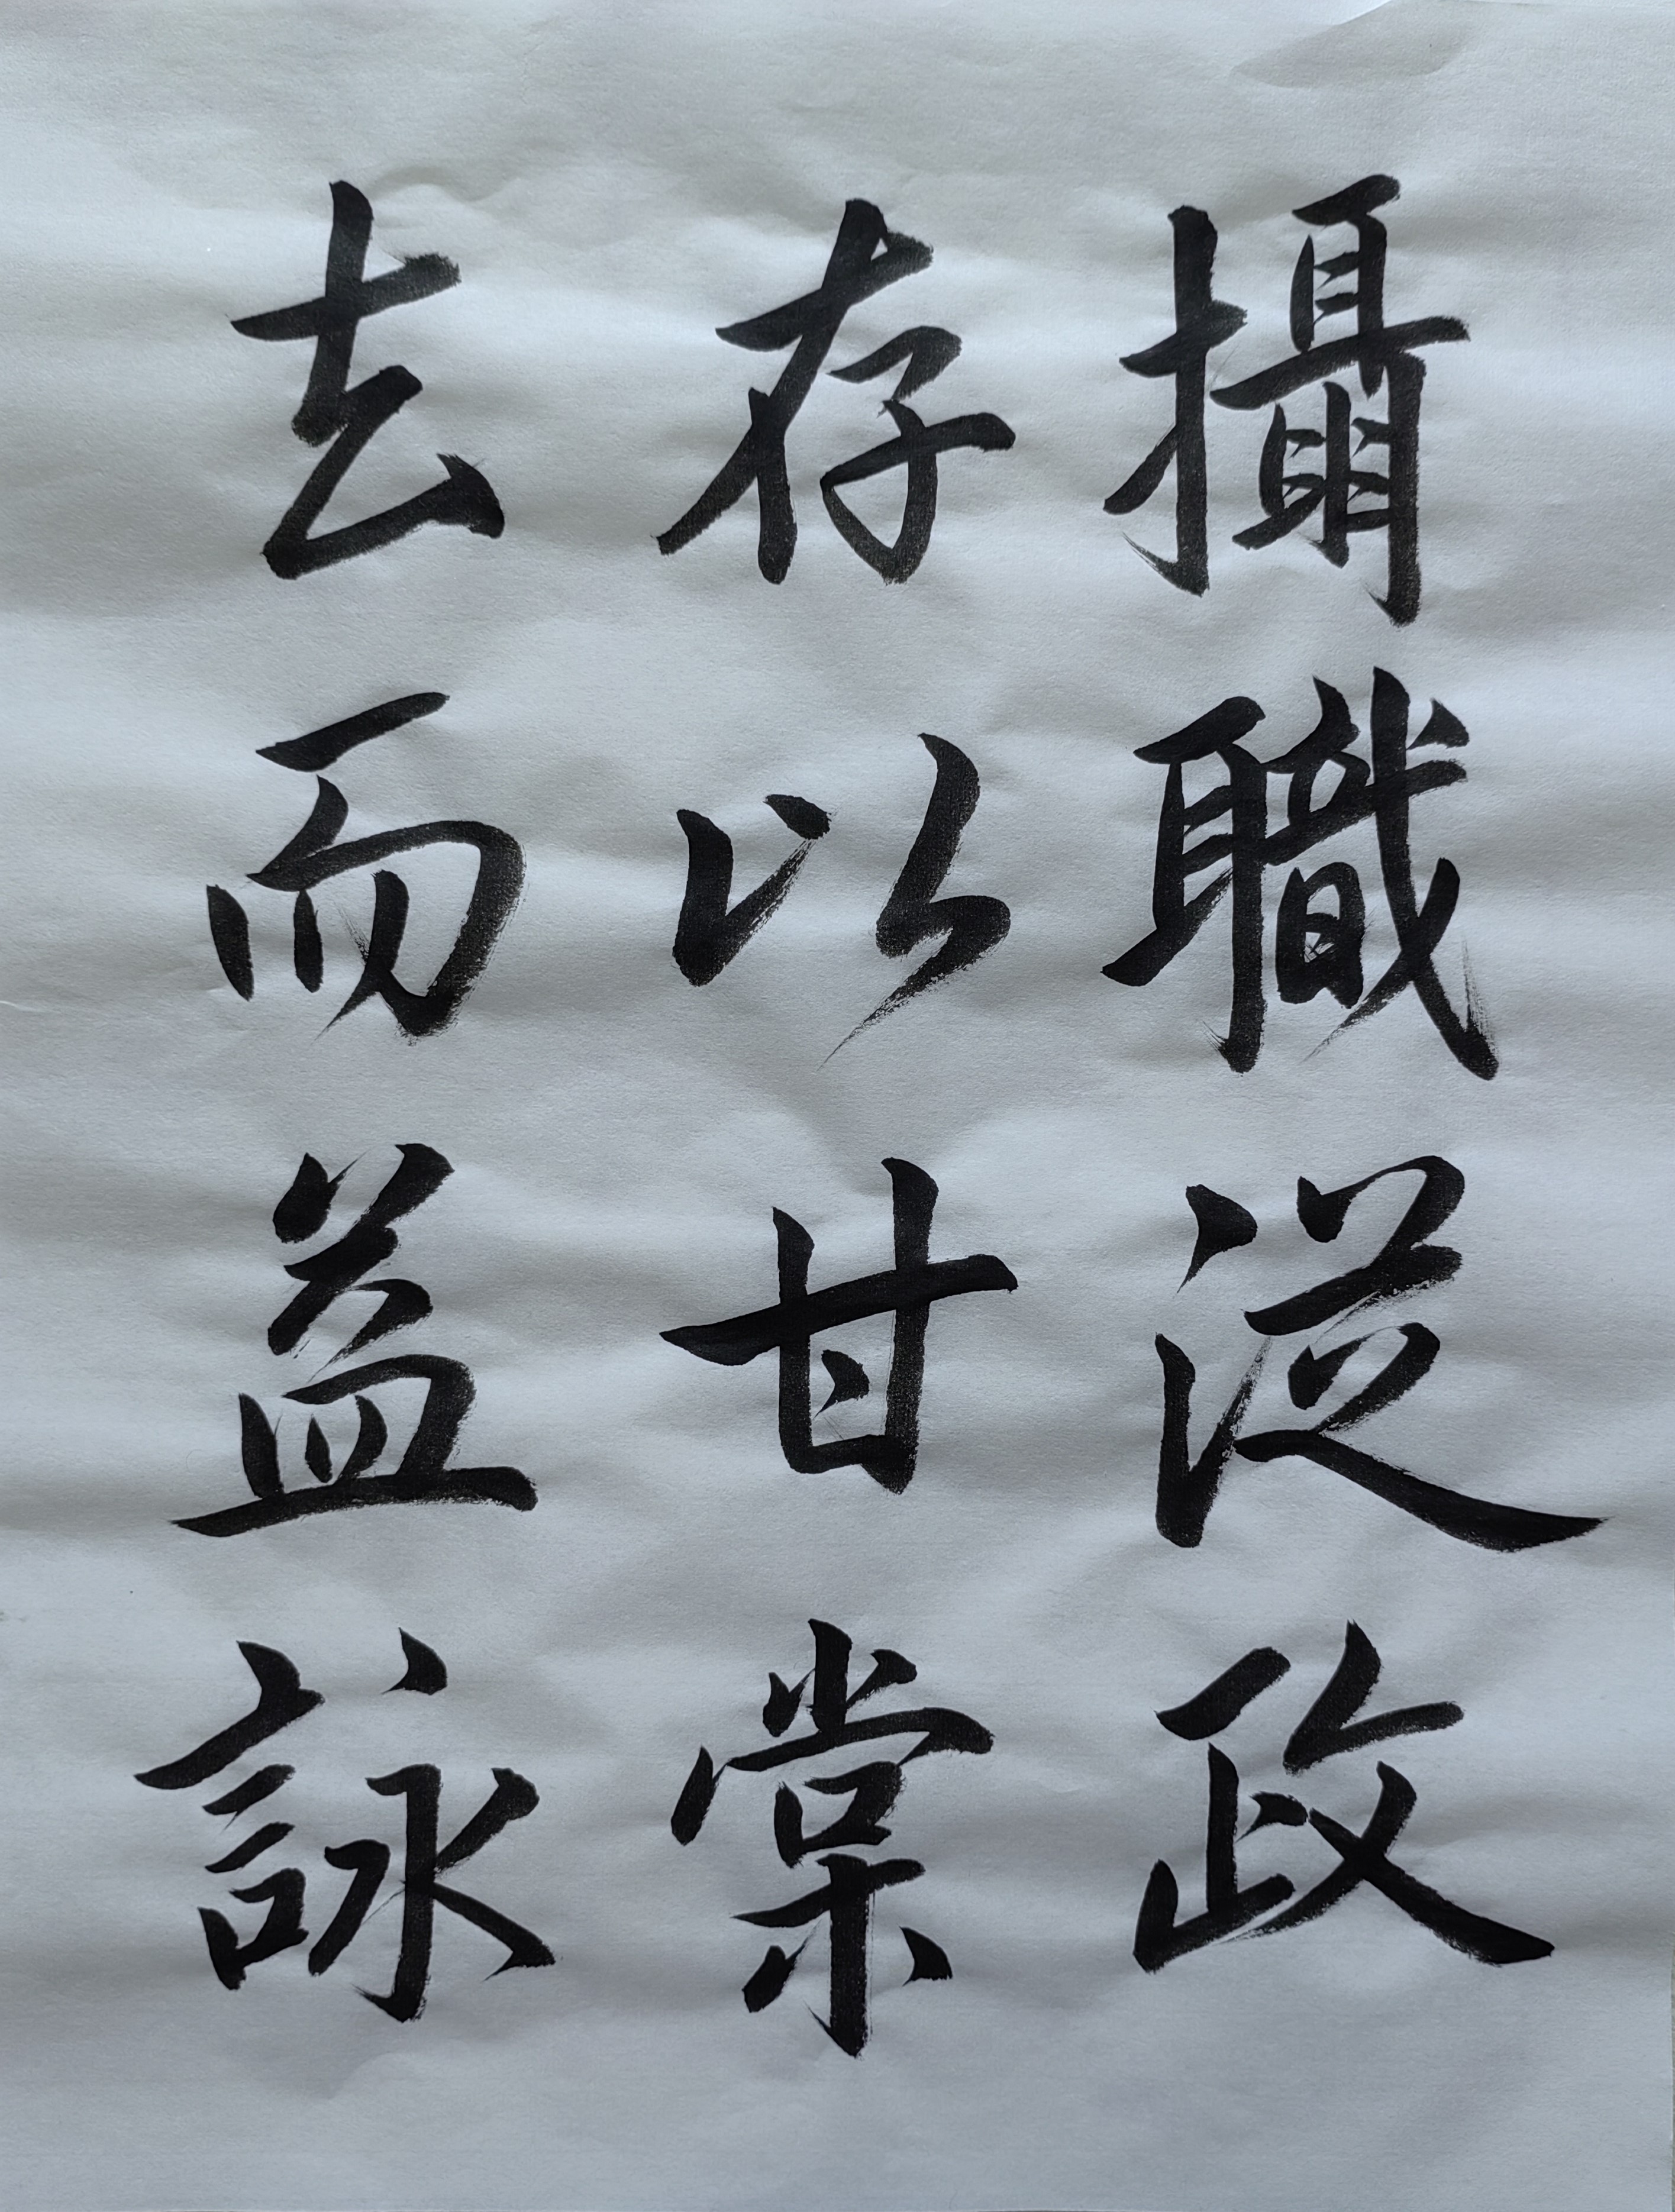 攝職從政
存以甘棠
去而益詠